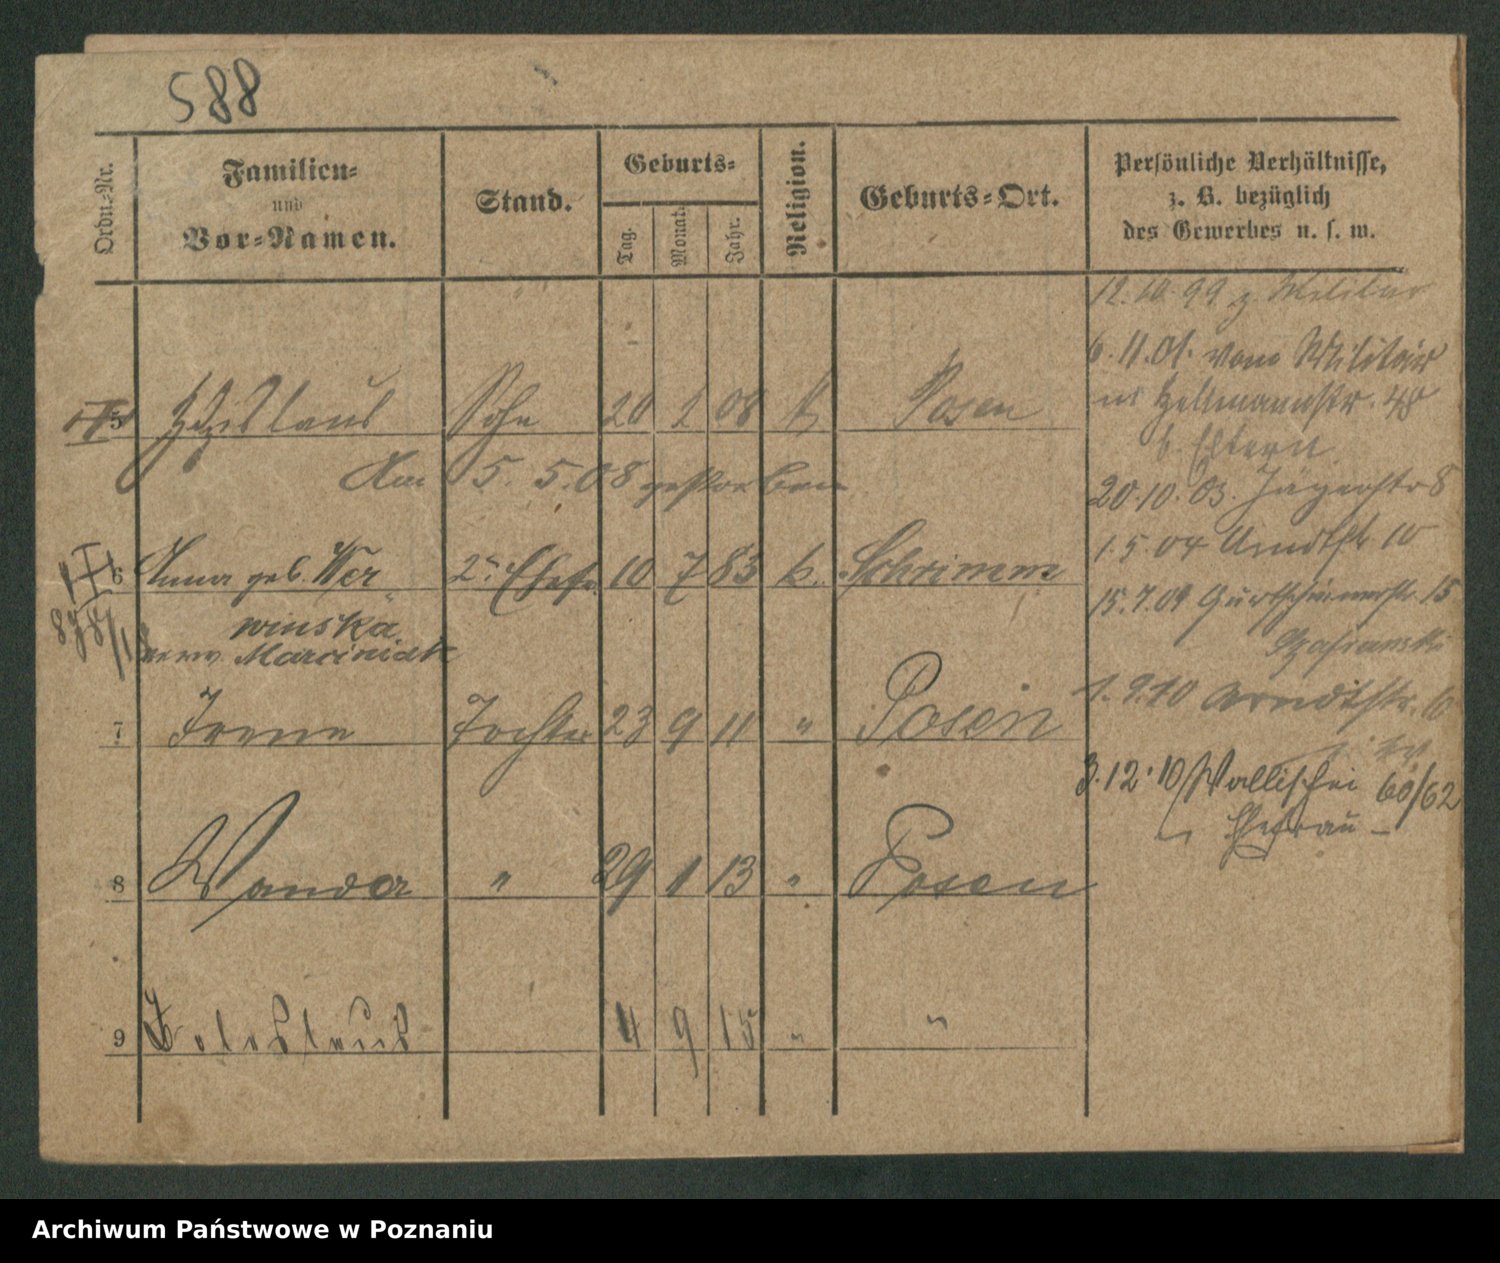 588
Ordn.-Nr.
Familien-
und
Vor-Namen.
Stand.
Geburts-
Tag.
Monat.
Jahr.
Religion.
Geburts-Ort.
Persönliche Verhältnisse,
z. B. bezüglich
des Gewerbes u. s. w.
12.10.99 z. Militär
6.11.01. vom Militair
48
b. Eltern
20.10.03. Jägerstr 8
1.5.04 Arndtstr 10
15.7.09 15
1.9.10 Arndtstr. 10
3.12.10 Wallischei 60/62
Ehefrau
5 Zdzislaus Sohn 20 2 08 k Posen
Am 5.5.08 gestorben
6 Anna geb. Wer 2te Ehefr 10 7 83 k. Schrimm
winska
verw Marciniak
7 Irene Tochter 23 9 11 " Posen
8 Wanda " 29 1 13 " Posen
9 4 9 15 " "
Archiwum Państwowe w Poznaniu